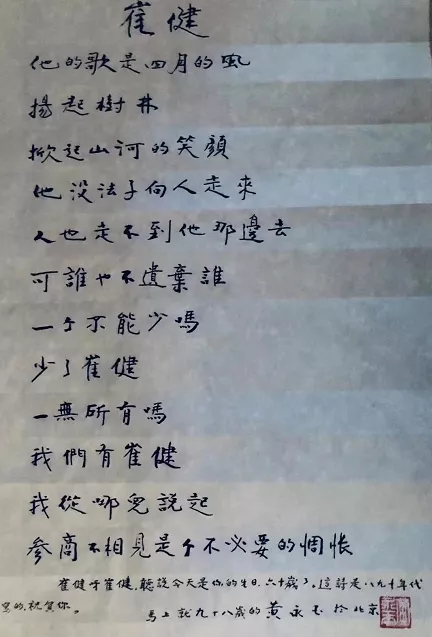 崔健
他的歌是四月的風
揚起樹林
掀起山河的笑顏
他没法子向人走來
人也走不到他那邊去
可誰也不遺棄誰
一个不能少嗎
少了崔健
一無所有嗎
我們有崔健
我從哪兒說起
參商不相見是个不必要的惆悵
崔健呀崔健,聽說今天是你的生日,六十歲了。這詩是八九十年代
寫的,祝賀你。
馬上就九十八歲的黃永玉於北京